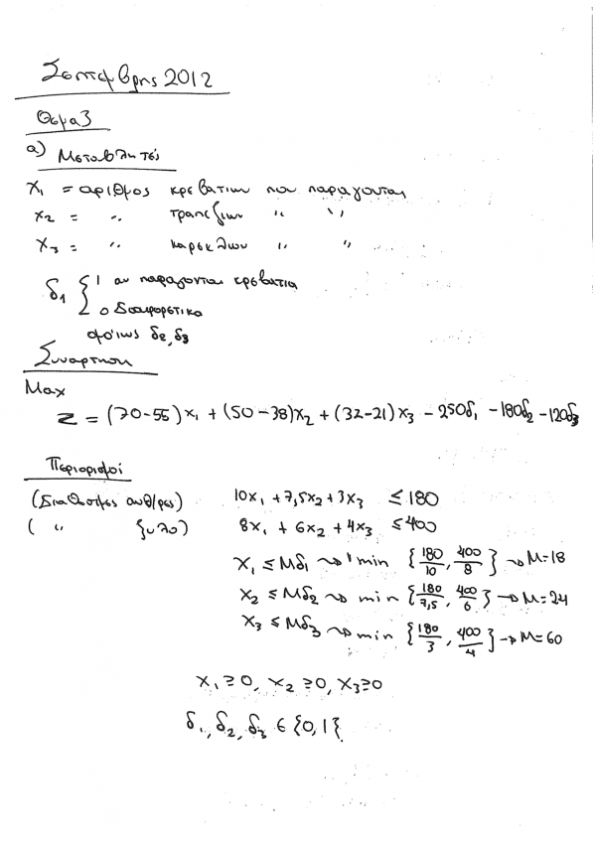 Σεπτεμβρης 2012
Θεμα 3
α) Μεταβλητές
x₁ = αριθμος κρεβατιων που παραγονται
x₂ = " τραπεζιων " "
x₃ = " καρεκλων " "
δ₁ { 1 αν παραγονται κρεβατια
0 διαφορετικα
ομοίως δ₂, δ₃
Συναρτηση
Max
Z = (70-55)x₁ + (50-38)x₂ + (32-21)x₃ - 250δ₁ - 180δ₂ - 120δ₃
Περιορισμοί
(Διαθεσιμες ανθ/ρες) 10x₁ + 7,5x₂ + 3x₃ ≤ 180
( " ξυλο) 8x₁ + 6x₂ + 4x₃ ≤ 400
x₁ ≤ Mδ₁ ⤳ min {180/10, 400/8} → M=18
x₂ ≤ Mδ₂ ⤳ min {180/7,5, 400/6} → M=24
x₃ ≤ Mδ₃ ⤳ min {180/3, 400/4} → M=60
x₁ ≥ 0, x₂ ≥ 0, x₃ ≥ 0
δ₁, δ₂, δ₃ ∈ {0,1}